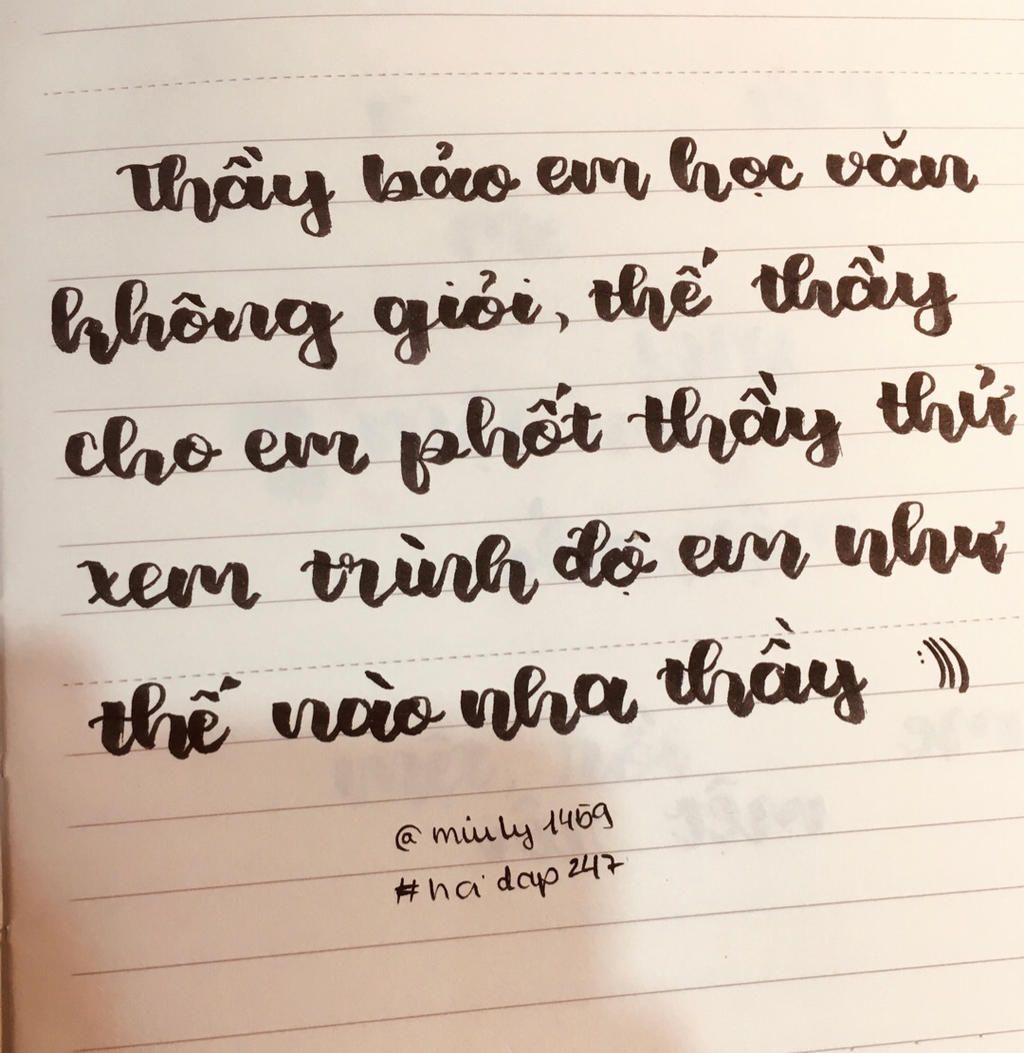 Thầy bảo em học văn
không giỏi, thế thầy
cho em phốt thầy thử
xem trình độ em như
thế nào nha thầy :)))
@miuly1459
#hoidap247